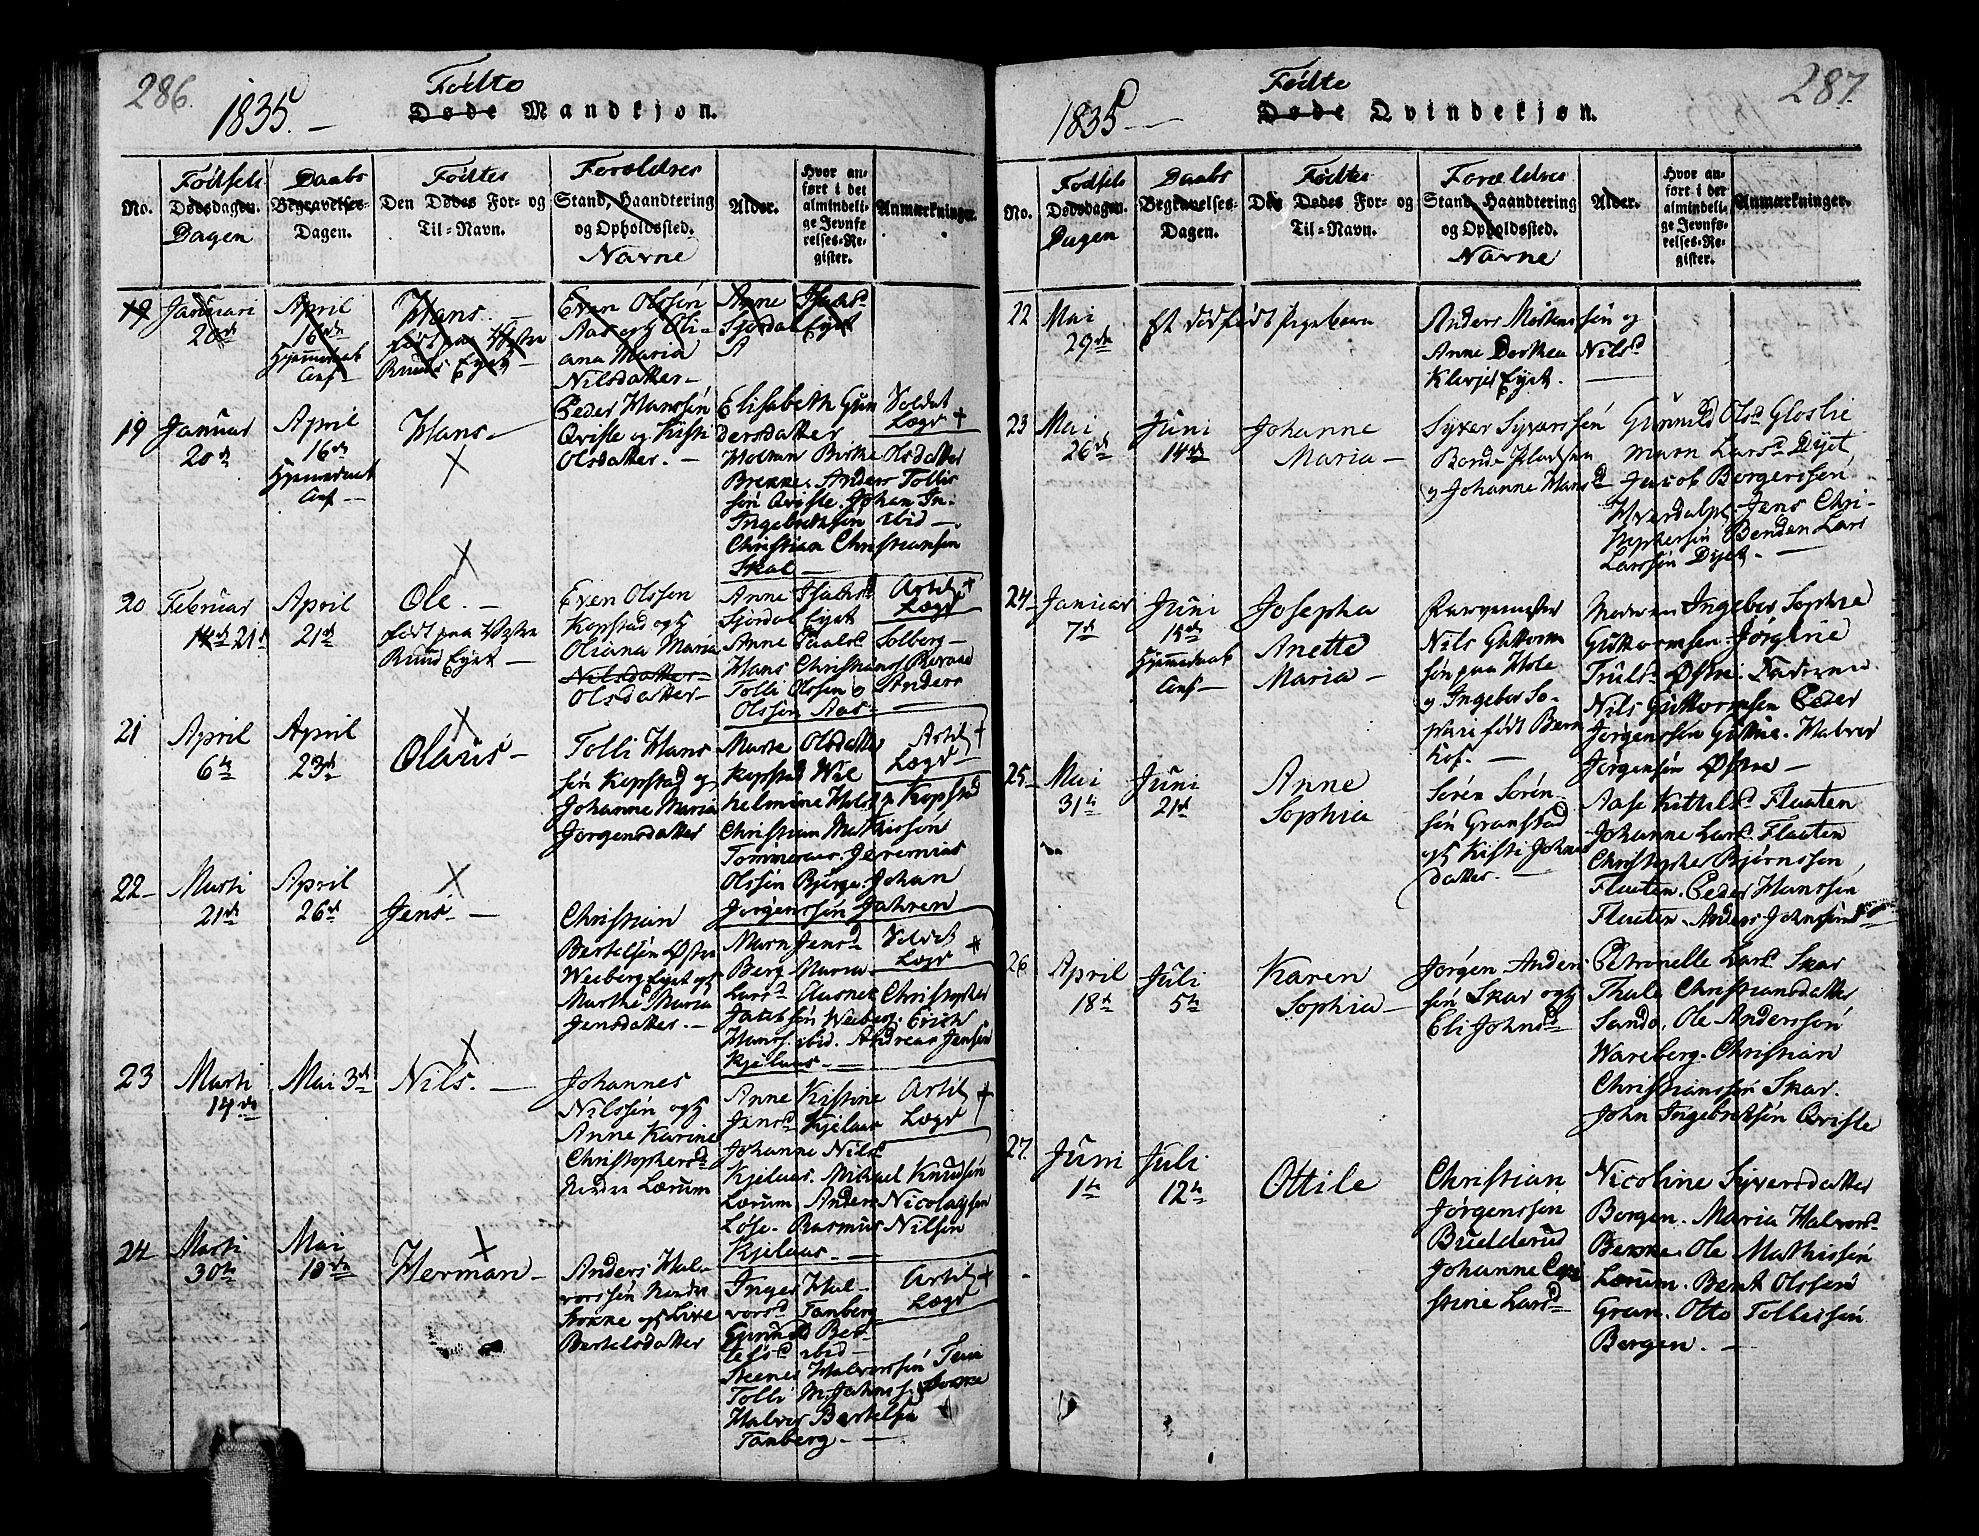 286.
1835. –
Födte
Døde Mandkjøn.
No.
Födsels
Dødsdagen.
Dagen
Daabs
Begravelses-
Dagen.
Födtes
Den Dødes For- og
Til-Navn.
Forældres
Stand, Haandtering
og Opholdssted.
Navne
Alder.
Hvor an-
ført i det
almindeli-
ge Jevnfø-
relses-Re-
gister.
Anmærkninger.
19 Januari
20de
April
16de
Hjemmedaab
Conf –
Hans. –
födt paa Vestre
Ruud Eyet –
Even Olssön
Aas og Oli-
ana Maria
Nilsdatter –
Anne Isaksd
Fjördal Eyet
19 Januar
20de
April
16de
Hjemmedaab
Conf –
Hans –
Peder Hanssön
Qvisle og Kisti
Olsdatter. –
Elisabeth Gun
dersdatter
Holtan Birthe Olsdatter
Brekke. Anders Tollis
sön Qvisle. Johan In-
Ingebretsen ibid –
Christian Christiansen
Skal –
Soldat
Lægd +
20 Februar
21d
April
21d
Ole. –
födt paa Vestre
Ruud Eyet –
Even Olssen
Kopstad og
Oliana Maria
Nilsdatter
Olsdatter –
Anne Isaksd
Fjordal Eyet
Anne Paalsd Solberg –
Hans Christians Revaae
Tolli Olssen o Anders
Olssen Aas –
Artil +
Lægd
21 April
6te
April
23de
Olaus –
Tolli Hans
sön Kopstad og
Johanne Maria
Jörgensdatter
Marte Olsdatter
Kopstad Wil
helmine Holst Kopstad
Christian Mathissön
Tommeraas Jeremias
Olssön Bjerge. Johan
Jörgenssön Jahren
Artil +
Lægd –
22 – Marti
21de
April
26de
Jens –
Christian
Bertelsön Östre
Weiberg Eyet og
Marthe Maria
Jensdatter. –
Marn Jensd
Berg Maria
Larsd Christopher
Jacobsön Weiberg. Erich
Hanss. ibid. Andreas Jensen
Kjelaas –
Soldat
Lægd +
23 Marti
14de
Mai 3de
Nils. –
Johannes
Nilssön og
Anne Karine
Christophersd
Nordre Lærum
Anne Kistine
Jensd Kjelaas
Johanne Nilsd
Kjelaas. Mikael Knudsön
Lærum. Anders Nicolaysen
Löse. Rasmus Nilsen
Kjelaas. –
Artil +
Lægd
24 Marti
30te
Mai
10de
Herman –
Anders Hal-
vorssön Nordre
og Live
Bertelsdatter
Inger Hal-
vorsd Tanberg
Gunild Ber-
telsd ibid –
Steener Halvorssön
Tolli
Halvor Bertelsen
Tanberg –
Artil +
Lægd
1835 –
Födte
Døde Qvindekjøn.
287.
No.
Födsels
Dødsdagen.
Dagen
Daabs
Begravelses-
Dagen.
Födte
Den Dødes For- og
Til-Navn.
Forældres
Stand, Haandtering
og Opholdssted.
Navne
Alder.
Hvor an-
ført i det
almindeli-
ge Jevnfø-
relses-Re-
gister.
Anmærkninger.
22 Mai
29de
Et dödfödt Pigebarn
Anders Mortenssön og
Anne Dorthea Nilsd
Klevjer Eyet. –
23 Mai
26de
Juni
14de
Johanne
Maria –
Syver Syverssön
Borde Pladsen
og Johanne Hansd
Gunnild Olsd Gloslie
Marn Larsd Dyet,
Jacob Borgerssen
Hverdalen. Jens Chri-
stophersen Benden Lars
Larssön Dyet. –
24 – Januar
7de
Juni
15de
Hjemmedaab
Conf –
Josepha
Anette
Maria –
Nils Guttorm
sön paa Hole
og Ingebor So-
födt Bern
hof. –
Madamen Ingebor Sophie
Guttormsen. Jörgine
Trulsd Østre. Fadderne
Nils Guttormsen Peder
Jörgenssön Halvor
Jörgensön Østre –
25. Mai
31te
Juni
21de
Anne
Sophia
Sören Sören-
sön Granstad
og Kisti Johns
datter. –
Aase Kittelsd Flaaten
Johanne Larsd Flaaten
Christopher Björnssön
Flaaten. Peder Hanssön
Flaaten. Anders Johnssön
26 April
18de
Juli
5te
Karen
Sophia –
Jörgen Anders
sön Skar og
Eli Johnsd
Petronelle Larsd Skar
Thale Christiansdatter
Sando. Ole Anderssön
Wareberg. Christian
Christianssön Skar.
John Ingebretsön Qvisle
27. Juni
1te
Juli
12te
Ottile
Christian
Jörgenssön
Budderud
Johanne
stine Larsd
Nicoline Syversdatter
Borgen. Maria Halvorsd
Bekke. Ole Mathissön
Lærum. Bent Olssön
Gran. Otto Tollessön
Borgen. –